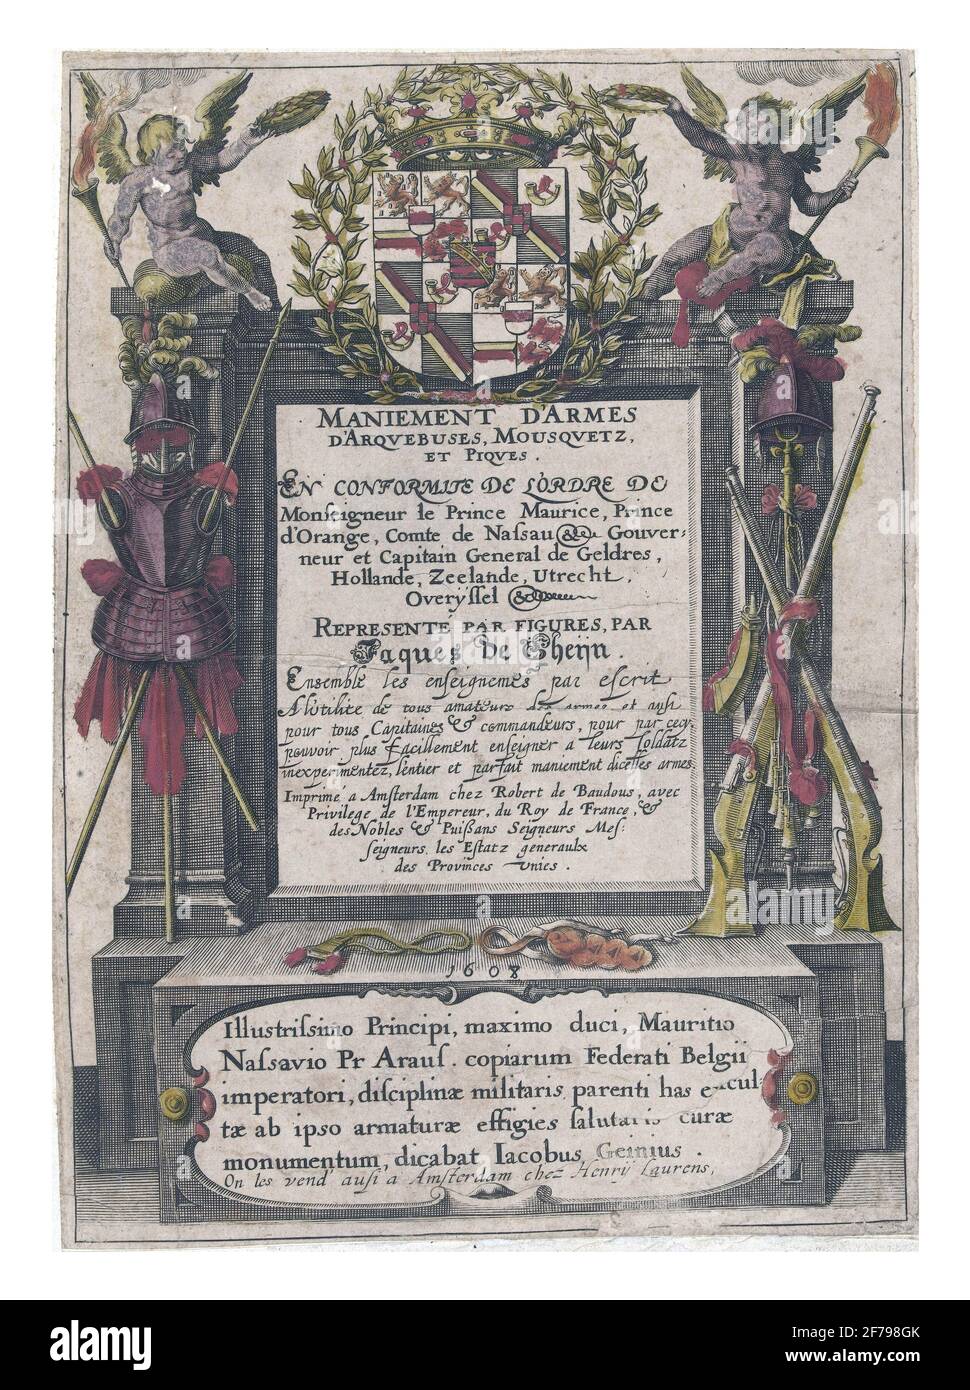 MANIEMENT D'ARMES
D'ARQVEBUSES, MOUSQVETZ,
ET PIQVES.
EN CONFORMITE DE L'ORDRE DE
Monſeigneur le Prince Maurice, Prince
d'Orange, Comte de Naſsau &c Gouver-
neur et Capitain General de Geldres,
Hollande, Zeelande, Utrecht,
Overÿſſel &c
REPRESENTE PAR FIGURES, PAR
Jaques de Gheÿn.
Enſemble les enſeignemēs par eſcrit
A l'utilite de tous amateurs des armes et auſi
pour tous Capitaines & commandeurs, pour par cecy,
pouvoir plus facillement enſeigner a leurs ſoldatz
inexperimentez, l'entier et parfait maniement d'icelles armes
Imprime a Amsterdam chez Robert de Baudous, avec
Privilege de l'Empereur, du Roy de France, &
des Nobles & Puißans Seigneurs Meſ:
ſeigneurs, les Eſtatz generaulx
des Provinces Vnies.
1608
Illustriſsimo Principi, maximo duci, Mauritio
Naſsavio Pr Arauſ. copiarum Federati Belgii
imperatori, diſciplinæ militaris parenti has exculꞏ
tæ ab ipso armaturæ effigies ſalutaris curæ
monumentum, dicabat Iacobus Geinius.
On les vend auſi a Amsterdam chez Henrÿ Laurens,
alamy
Image ID: 2F798GK
www.alamy.com